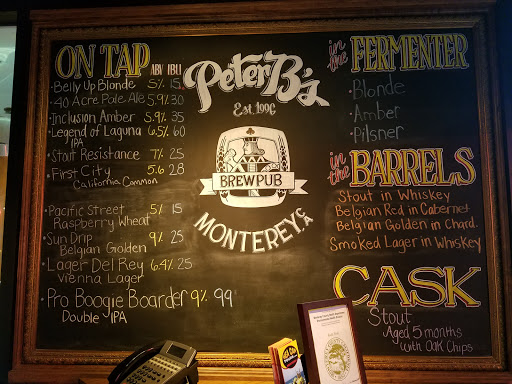 ON TAP ABV IBU
• Belly Up Blonde 5% 15
• 40 Acre Pale Ale 5.9% 30
• Inclusion Amber 5.9% 35
• Legend of Laguna 6.5% 60
IPA
• Stout Resistance 7% 25
• First City 5.6 28
California Common
• Pacific Street 5% 15
Raspberry Wheat
• Sun Drip 9% 25
Belgian Golden
• Lager Del Rey 6.4% 25
Vienna Lager
• Pro Boogie Boarder 9% 99
Double IPA
Peter B's
Est. 1996
BREWPUB
MONTEREY, CA
in the FERMENTER
• Blonde
Amber
• Pilsner
in the BARRELS
Stout in Whiskey
Belgian Red in Cabernet
Belgian Golden in Chard.
Smoked Lager in Whiskey
CASK
Stout
Aged 5 months
with Oak Chips